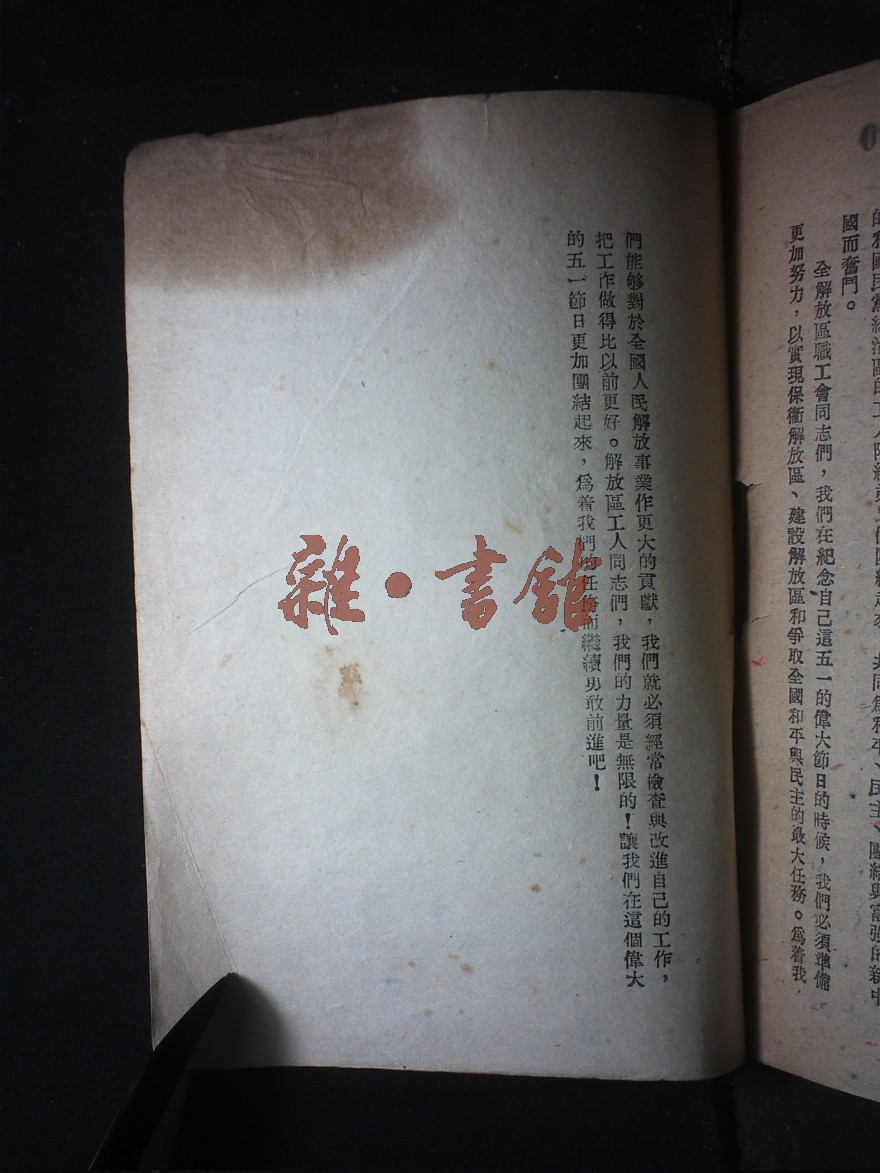 國而奮鬥。
全解放區職工會同志們，我們在紀念自己這五一的偉大節日的時候，我們必須準備
更加努力，以實現保衞解放區、建設解放區和爭取全國和平與民主的最大任務。爲着我
們能够對於全國人民解放事業作更大的貢獻，我們就必須經常檢查與改進自己的工作，
把工作做得比以前更好。解放區工人同志們，我們的力量是無限的！讓我們在這個偉大
的五一節日更加團結起來，爲着我們的任務而繼續勇敢前進吧！
雜·書館